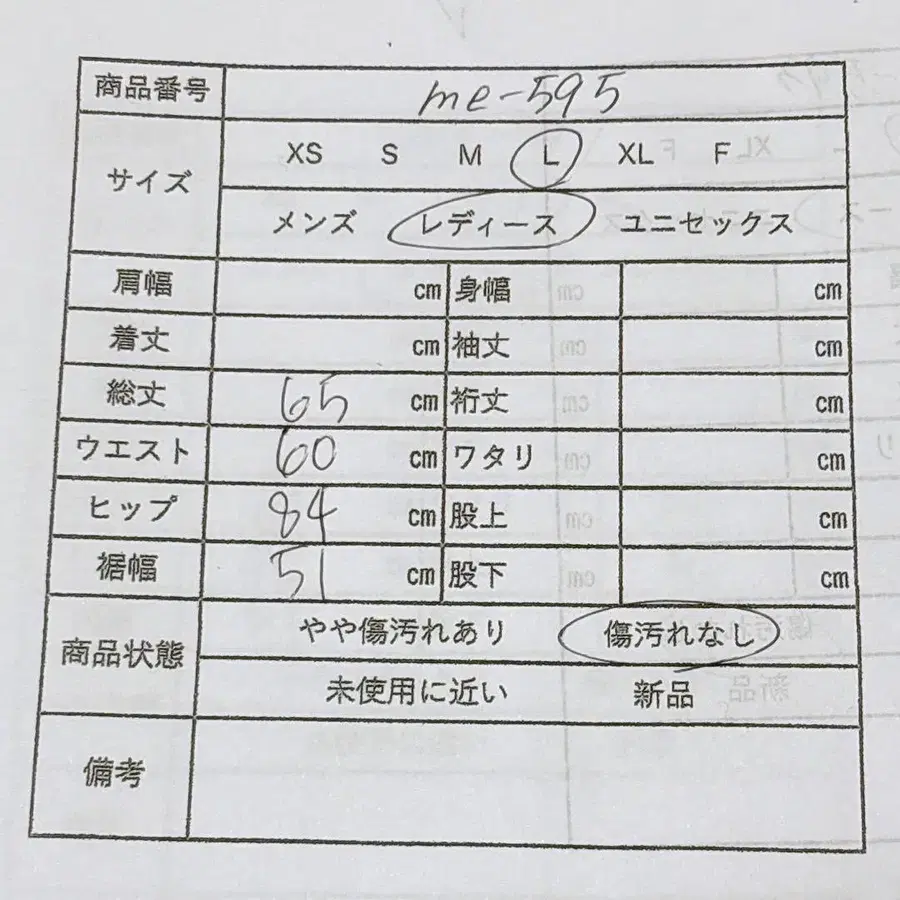 商品番号 me-595
サイズ XS S M L XL F
メンズ レディース ユニセックス
肩幅 cm 身幅 cm
着丈 cm 袖丈 cm
総丈 65 cm 裄丈 cm
ウエスト 60 cm ワタリ cm
ヒップ 84 cm 股上 cm
裾幅 51 cm 股下 cm
商品状態 やや傷汚れあり 傷汚れなし
未使用に近い 新品
備考